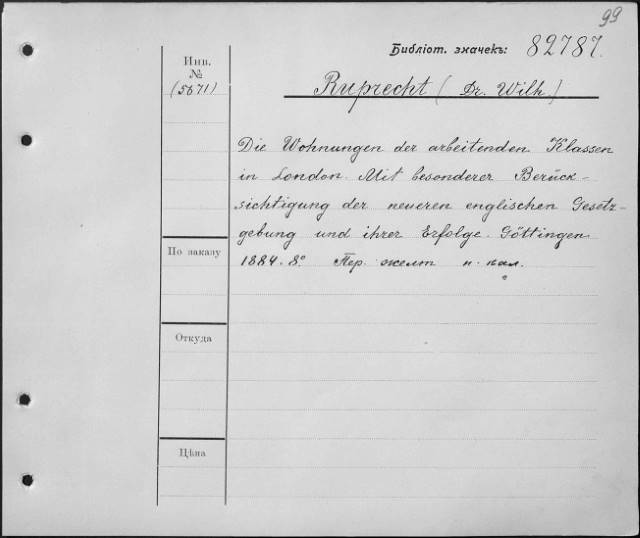 99
Библіот. значекъ: 82787.
Инв.
№
(5671)
Ruprecht (Dr. Wilh.)
Die Wohnungen der arbeitenden Klassen
in London. Mit besonderer Berück-
sichtigung der neueren englischen Gesetz-
gebung und ihrer Erfolge. Göttingen
1884. 8° Пер. желт к. кал.
По заказу
Откуда
Цѣна